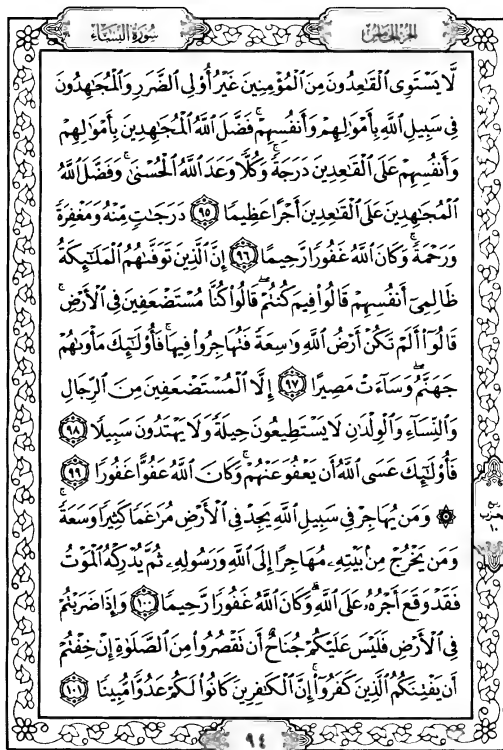 سُورَةُ النِّسَاءِ
الجُزْءُ الخَامِسُ
لَّا يَسْتَوِى الْقَٰعِدُونَ مِنَ الْمُؤْمِنِينَ غَيْرُ أُو۟لِى الضَّرَرِ وَالْمُجَٰهِدُونَ
فِى سَبِيلِ اللَّهِ بِأَمْوَٰلِهِمْ وَأَنفُسِهِمْ ۚ فَضَّلَ اللَّهُ الْمُجَٰهِدِينَ بِأَمْوَٰلِهِمْ
وَأَنفُسِهِمْ عَلَى الْقَٰعِدِينَ دَرَجَةً ۚ وَكُلًّا وَعَدَ اللَّهُ الْحُسْنَىٰ ۚ وَفَضَّلَ اللَّهُ
الْمُجَٰهِدِينَ عَلَى الْقَٰعِدِينَ أَجْرًا عَظِيمًا ٩٥ دَرَجَٰتٍ مِّنْهُ وَمَغْفِرَةً
وَرَحْمَةً ۚ وَكَانَ اللَّهُ غَفُورًا رَّحِيمًا ٩٦ إِنَّ الَّذِينَ تَوَفَّىٰهُمُ الْمَلَٰٓئِكَةُ
ظَالِمِىٓ أَنفُسِهِمْ قَالُوا۟ فِيمَ كُنتُمْ ۖ قَالُوا۟ كُنَّا مُسْتَضْعَفِينَ فِى الْأَرْضِ ۚ
قَالُوٓا۟ أَلَمْ تَكُنْ أَرْضُ اللَّهِ وَٰسِعَةً فَتُهَاجِرُوا۟ فِيهَا ۚ فَأُو۟لَٰٓئِكَ مَأْوَىٰهُمْ
جَهَنَّمُ ۖ وَسَآءَتْ مَصِيرًا ٩٧ إِلَّا الْمُسْتَضْعَفِينَ مِنَ الرِّجَالِ
وَالنِّسَآءِ وَالْوِلْدَٰنِ لَا يَسْتَطِيعُونَ حِيلَةً وَلَا يَهْتَدُونَ سَبِيلًا ٩٨
فَأُو۟لَٰٓئِكَ عَسَى اللَّهُ أَن يَعْفُوَ عَنْهُمْ ۚ وَكَانَ اللَّهُ عَفُوًّا غَفُورًا ٩٩
۞ وَمَن يُهَاجِرْ فِى سَبِيلِ اللَّهِ يَجِدْ فِى الْأَرْضِ مُرَٰغَمًا كَثِيرًا وَسَعَةً ۚ
وَمَن يَخْرُجْ مِنۢ بَيْتِهِۦ مُهَاجِرًا إِلَى اللَّهِ وَرَسُولِهِۦ ثُمَّ يُدْرِكْهُ الْمَوْتُ
فَقَدْ وَقَعَ أَجْرُهُۥ عَلَى اللَّهِ ۗ وَكَانَ اللَّهُ غَفُورًا رَّحِيمًا ١٠٠ وَإِذَا ضَرَبْتُمْ
فِى الْأَرْضِ فَلَيْسَ عَلَيْكُمْ جُنَاحٌ أَن تَقْصُرُوا۟ مِنَ الصَّلَوٰةِ إِنْ خِفْتُمْ
أَن يَفْتِنَكُمُ الَّذِينَ كَفَرُوٓا۟ ۚ إِنَّ الْكَٰفِرِينَ كَانُوا۟ لَكُمْ عَدُوًّا مُّبِينًا ١٠١
ربع
حزب
١٠
٩٤